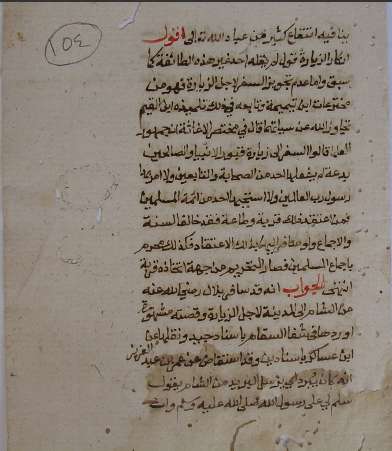 ١٥٤
بنا فيه انتفاع كثير من عباد الله تعالى اقول
انكار الزيارة قول لم يقله احد غير هذه الطائفة كما
سبق واما عدم تجويز السفر لاجل الزيارة فهو من
مخترعات ابن تيمية وتابعه في ذلك تلميذه ابن القيم
تجاوز الله عن سيآتهما قال في مختصر الاغاثة ان جمهور
العلماء قالوا السفر الى زيارة قبور الانبيا والصالحين
بدعة لم يفعلها احد من الصحابة والتابعين ولا امر بها
رسول رب العالمين ولا استحبها احد من ائمة المسلمين
فمن اعتقد ذلك قربة وطاعة فقد خالف السنة
والاجماع ولو سافر اليها بذلك الاعتقاد فذلك محرم
باجماع المسلمين فصار التحريم من جهة اتخاذه قربة
انتهى الجواب انه قد سافر بلال رضي الله عنه
من الشام الى المدينة لاجل الزيارة وقصته مشهورة
اوردها في شفا السقام باسناد جيد ونقلها عن
ابن عساكر باسنادين وقد استفاض عن عمر بن عبد العزيز
انه كان يبرد البريد من الشام يقول
سلم لي على رسول الله صلى الله عليه وسلم وان